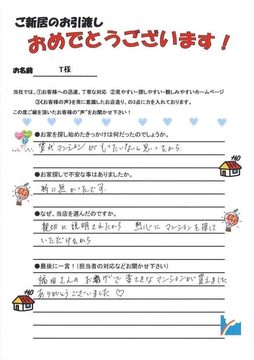 ご新居のお引渡し
おめでとうございます！
お名前 T様
当社では、①お客様への迅速、丁寧な対応 ②見やすい・探しやすい・親しみやすいホームページ
③《お客様の声》を常に意識したお店造り、の3点に力を入れております。
この度ご縁を頂いたお客様の“声”をお聞かせ下さい！
●お家を探し始めたきっかけは何だったのでしょうか。
賃貸マンションがもったいないと思ったから
●お家探しで不安な事はありましたか。
特に無かったです。
●なぜ、当店を選んだのですか。
親切に説明されたから 熱心にマンションを探して
いただけたから
●最後に一言！（担当者の対応などお聞かせ下さい）
さんのお蔭で素敵なマンションが買えました
ありがとうございました♡